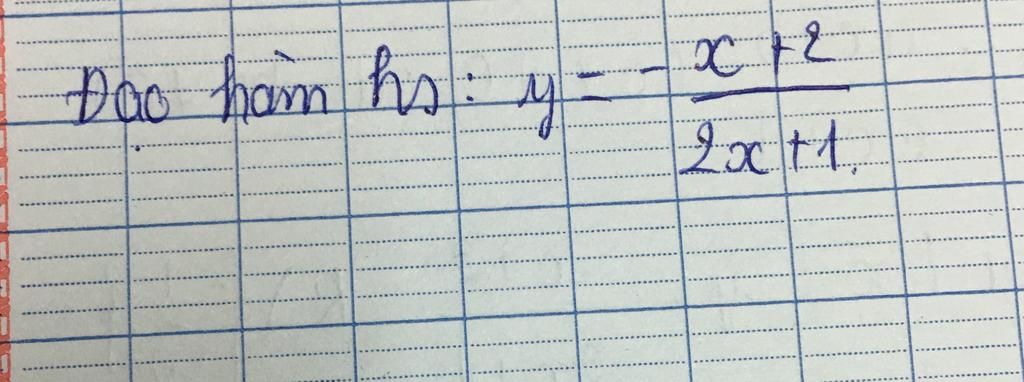 Đạo hàm hs: y = - x + 2 / 2x + 1.